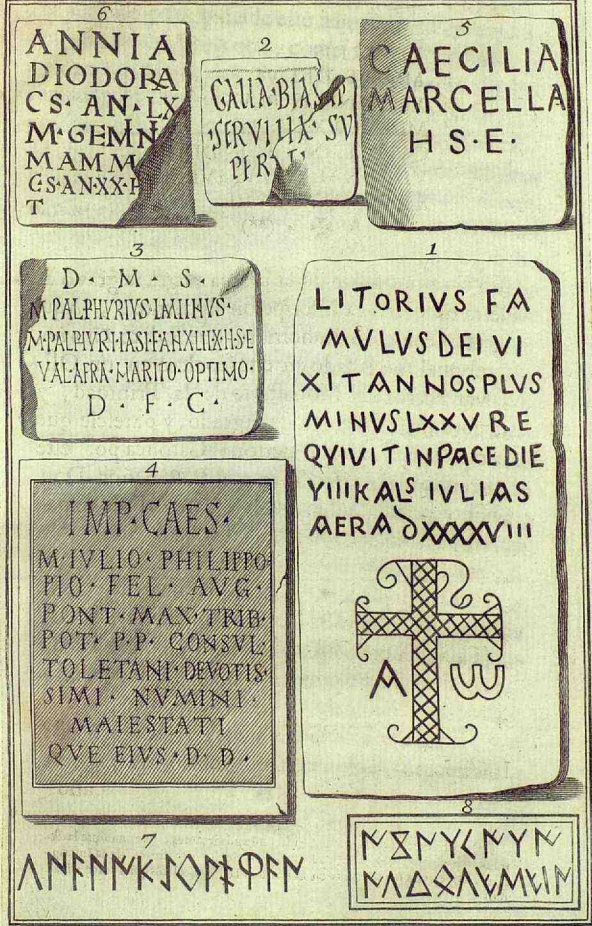 6
ANNIA
DIODORA
CS· AN· LX
M·GEMN
MAMM
CS·AN·XX·
T
2
GALLA·BIAS
·SERVIIIX· SV
PER
5
CAECILIA
MARCELLA
H S·E·
3
D · M · S ·
M PALPHVRIVS·LMIIHVS·
M·PALPIVRI·IASI·F·AHXLIIX·H·S·E
VAL·AFRA·MARITO·OPTIMO·
D · F · C ·
1
LITORIVS FA
MVLVS DEI VI
XIT ANNOS PLVS
MINVS LXXV RE
QVIVIT IN PACE DIE
VIIIKALS IVLIAS
AERA DXXXXVIII
A ω
4
IMP·CAES·
M·IVLIO·PHILIPPO
PIO· FEL· AVG·
PONT·MAX·TRIB·
POT· P·P· CONSVL·
TOLETANI·DEVOTIS
SIMI· NVMINI·
MAIESTATI
QVE EIVS·D·D·
7
8